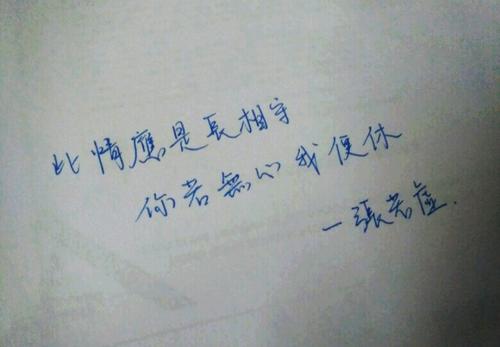 此情應是長相守
你若無心我便休
—張若虛.